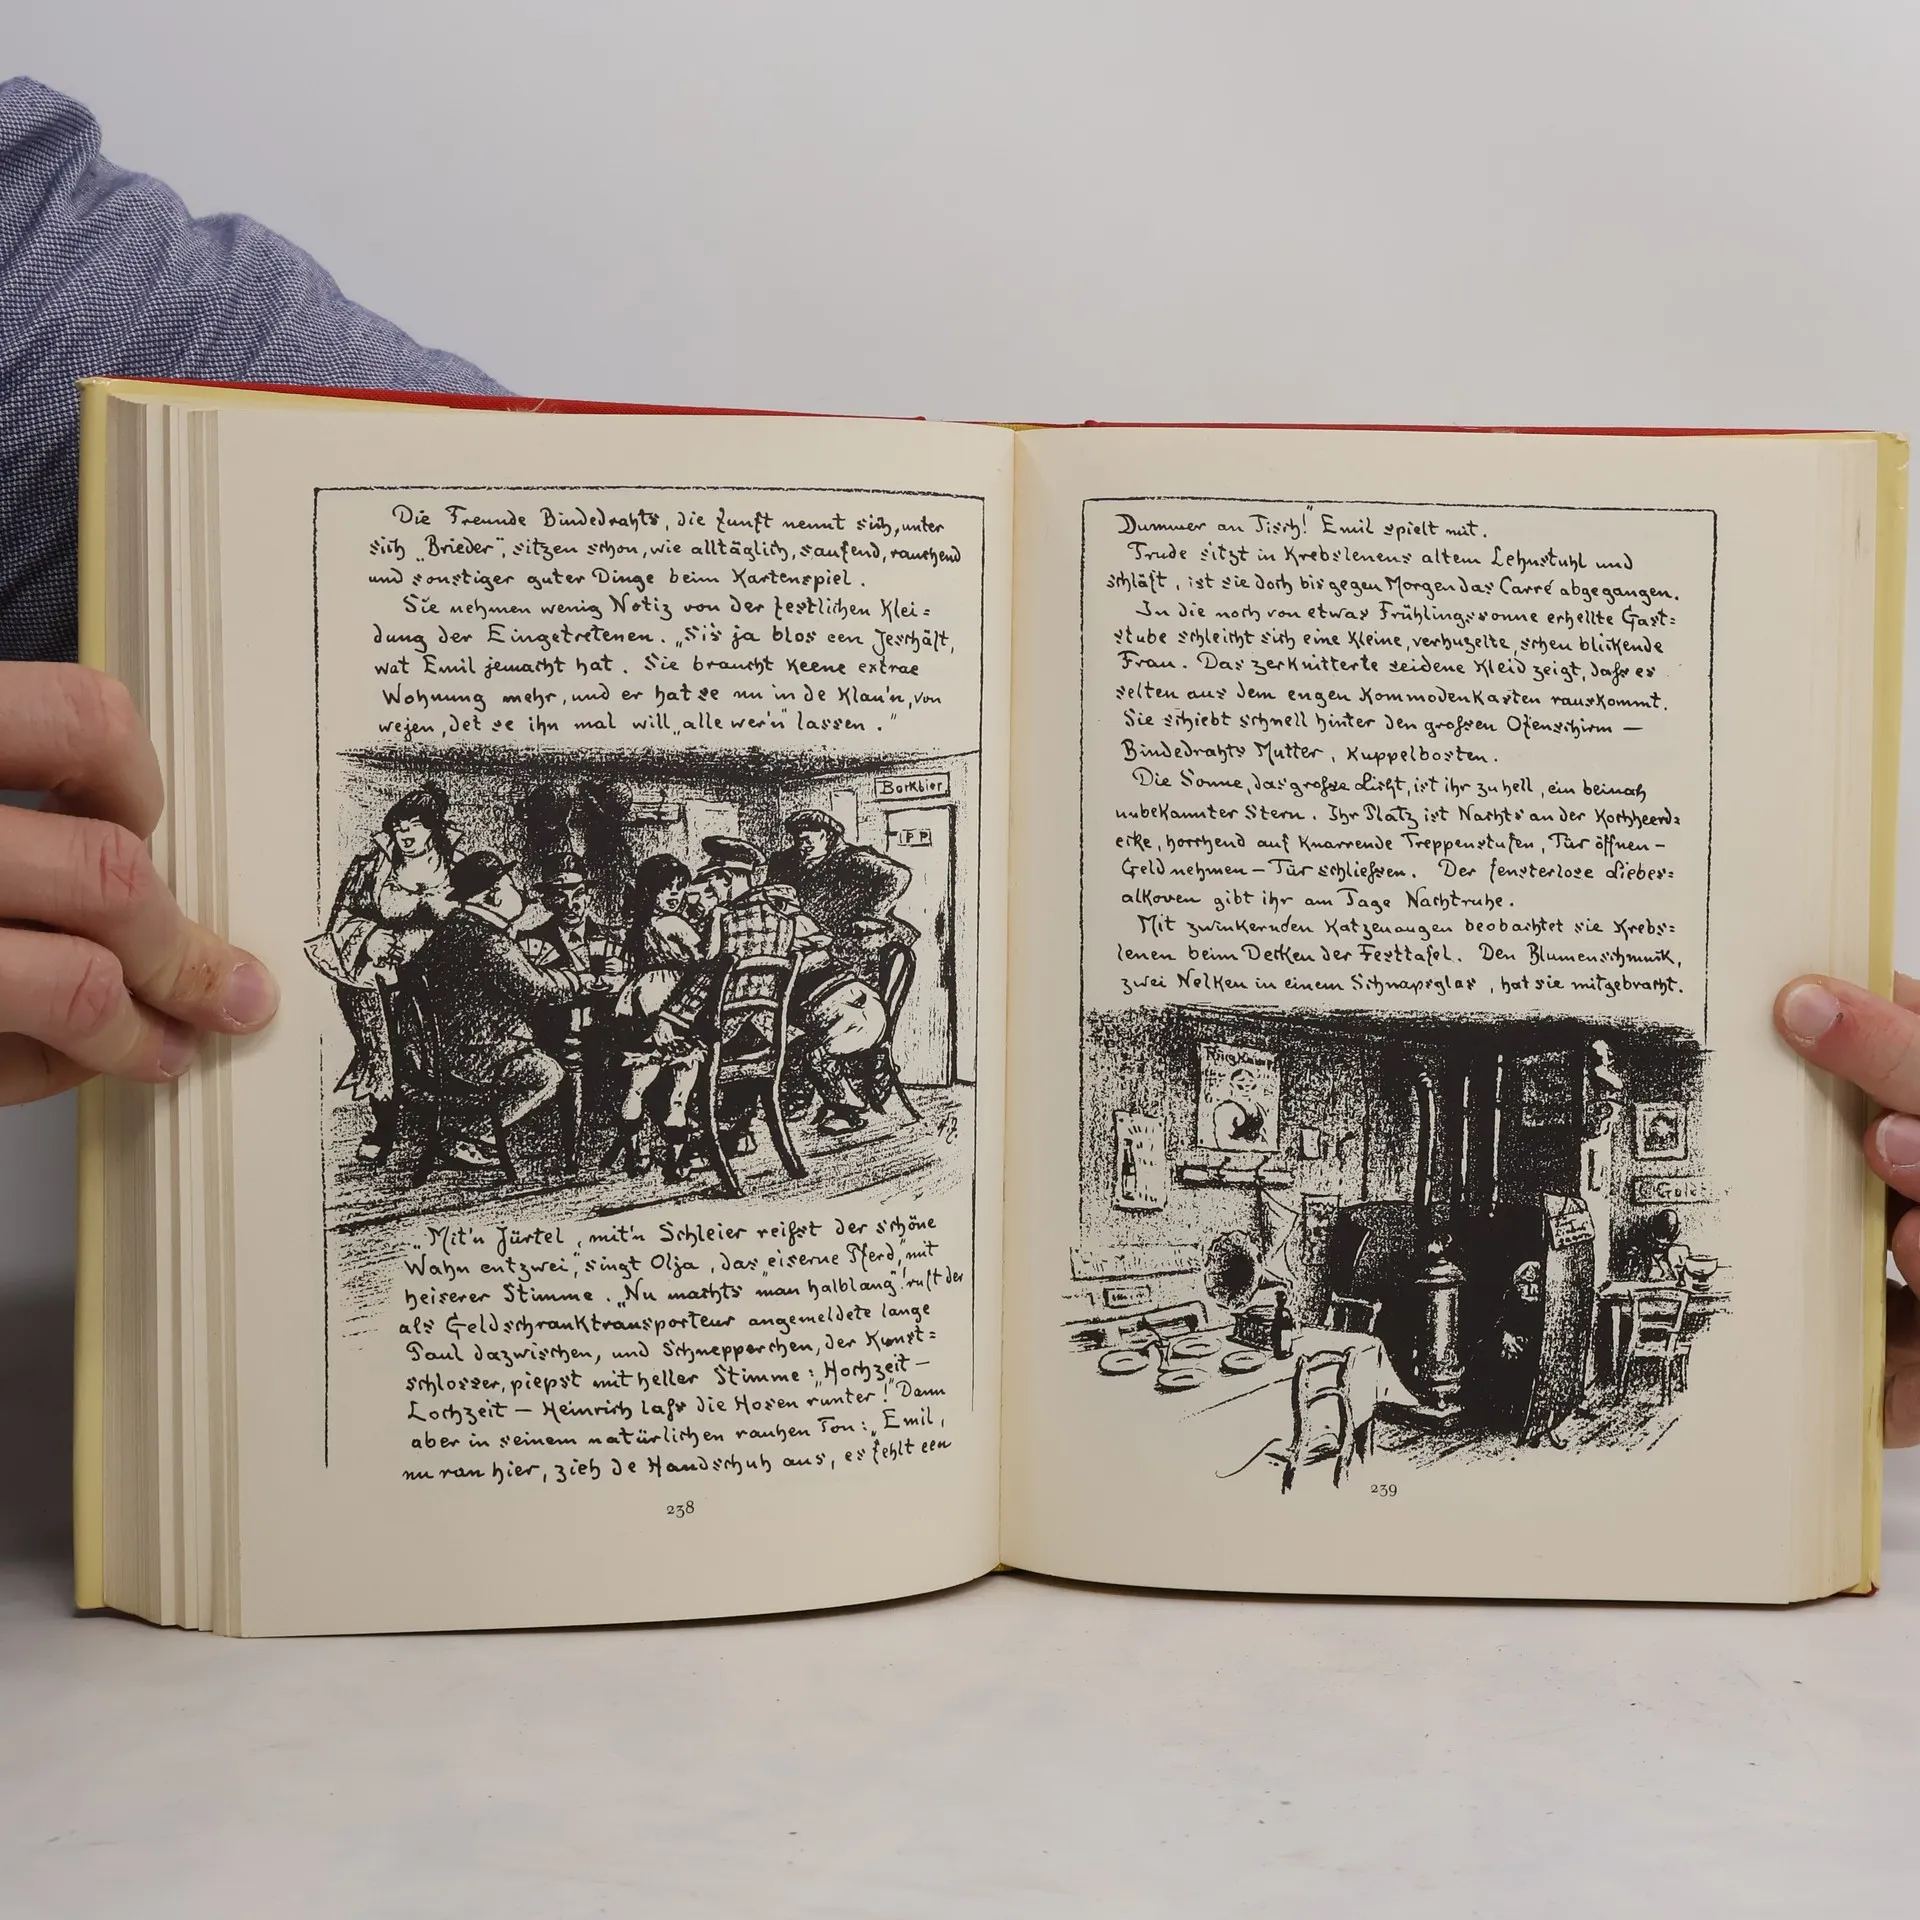 Die Freunde Bindedrahts, die Zunft nennt sich, unter
sich „Brieder“, sitzen schon, wie alltäglich, saufend, rauchend
und sonstiger guter Dinge beim Kartenspiel.
Sie nehmen wenig Notiz von der festlichen Klei=
dung der Eingetretenen. „Sis ja blos een Jeschäft,
wat Emil jemacht hat. Sie braucht keene extrae
Wohnung mehr, und er hat se nu in de Klau'n, von
wejen, det se ihn mal will „alle wer'n“ lassen.“
Bockbier
PP
„Mit'n Jürtel, mit'n Schleier reißst der schöne
Wahn entzwei“, singt Olja, das „eiserne Pferd“, mit
heiserer Stimme. „Nu machts man halblang“! ruft der
als Geldschranktransporteur angemeldete lange
Paul dazwischen, und Schnepperchen, der Kunst=
schlosser, piepst mit heller Stimme: „Hochzeit —
Lochzeit — Heinrich laß die Hosen runter!“ Dann
aber in seinem natürlichen rauhen Ton: „Emil,
nu ran hier, zieh de Handschuh aus, es fehlt een
238
Dummer an Tisch!“ Emil spielt mit.
Trude sitzt in Krebslenens altem Lehnstuhl und
schläft, ist sie doch bis gegen Morgen das Carré abgegangen.
In die noch von etwas Frühlingssonne erhellte Gast=
stube schleicht sich eine kleine, verhuzelte, scheu blickende
Frau. Das zerknitterte seidene Kleid zeigt, daß es
selten aus dem engen Kommodenkasten rauskommt.
Sie schiebt schnell hinter den großen Ofenschirm —
Bindedrahts Mutter, Kuppelbosten.
Die Sonne, das grosse Licht, ist ihr zu hell, ein beinah
unbekannter Stern. Ihr Platz ist Nachts an der Kochheerd=
ecke, horchend auf knarrende Treppenstufen, Tür öffnen —
Geld nehmen — Tür schließen. Der fensterlose Liebes=
alkoven gibt ihr am Tage Nachtruhe.
Mit zwinkernden Katzenaugen beobachtet sie Krebs=
lenen beim Decken der Festtafel. Den Blumenschmuck,
zwei Nelken in einem Schnapsglas, hat sie mitgebracht.
239